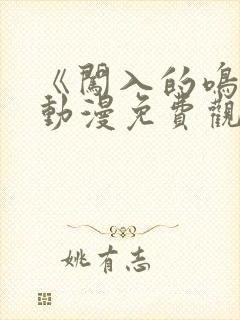 《闖入的鳴
動漫免費觀
姚有志